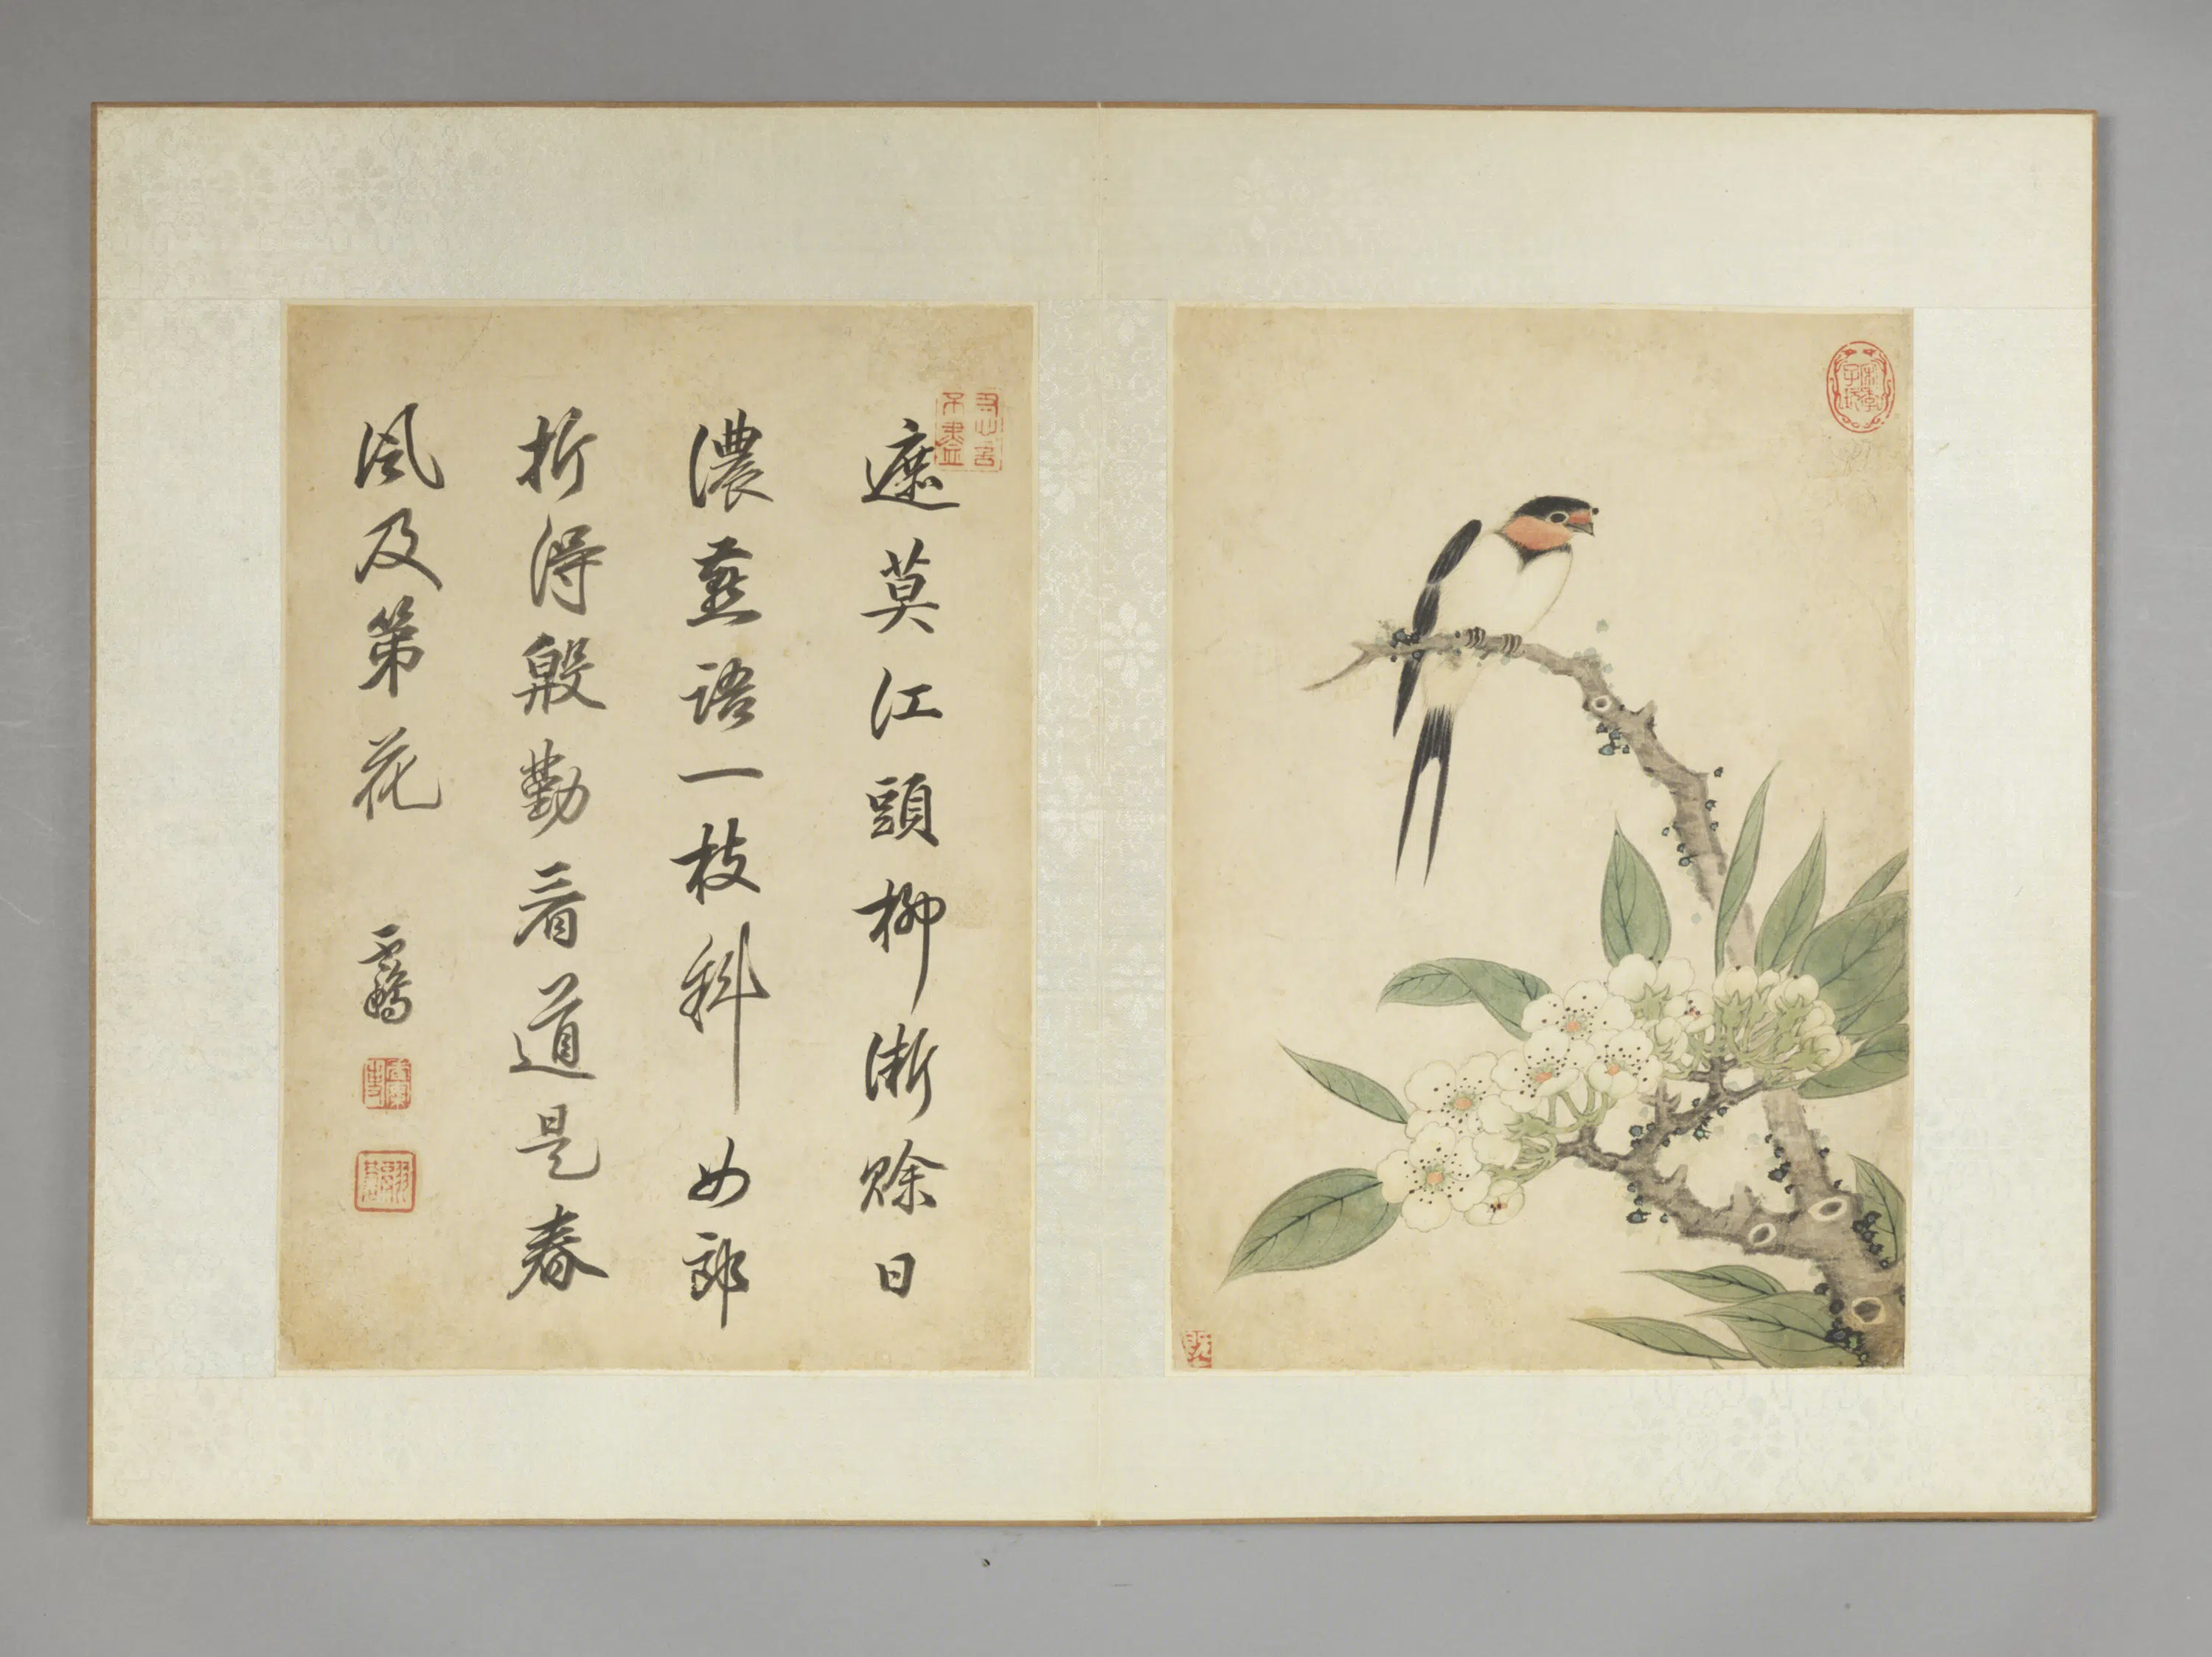 遮莫江頭柳漸賖日
濃燕語一枝斜女郎
折得殷勤看道是春
風及第花